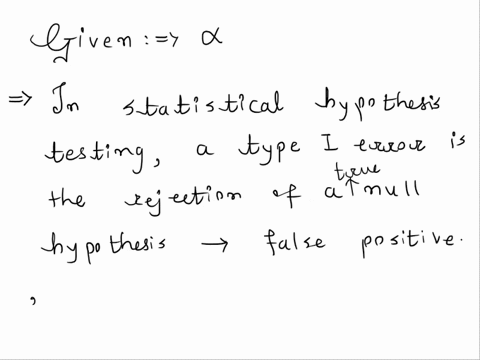 Given :=> α
=> In statistical hypothesis
testing, a type I error is
the rejection of a true null
hypothesis → false positive.
,